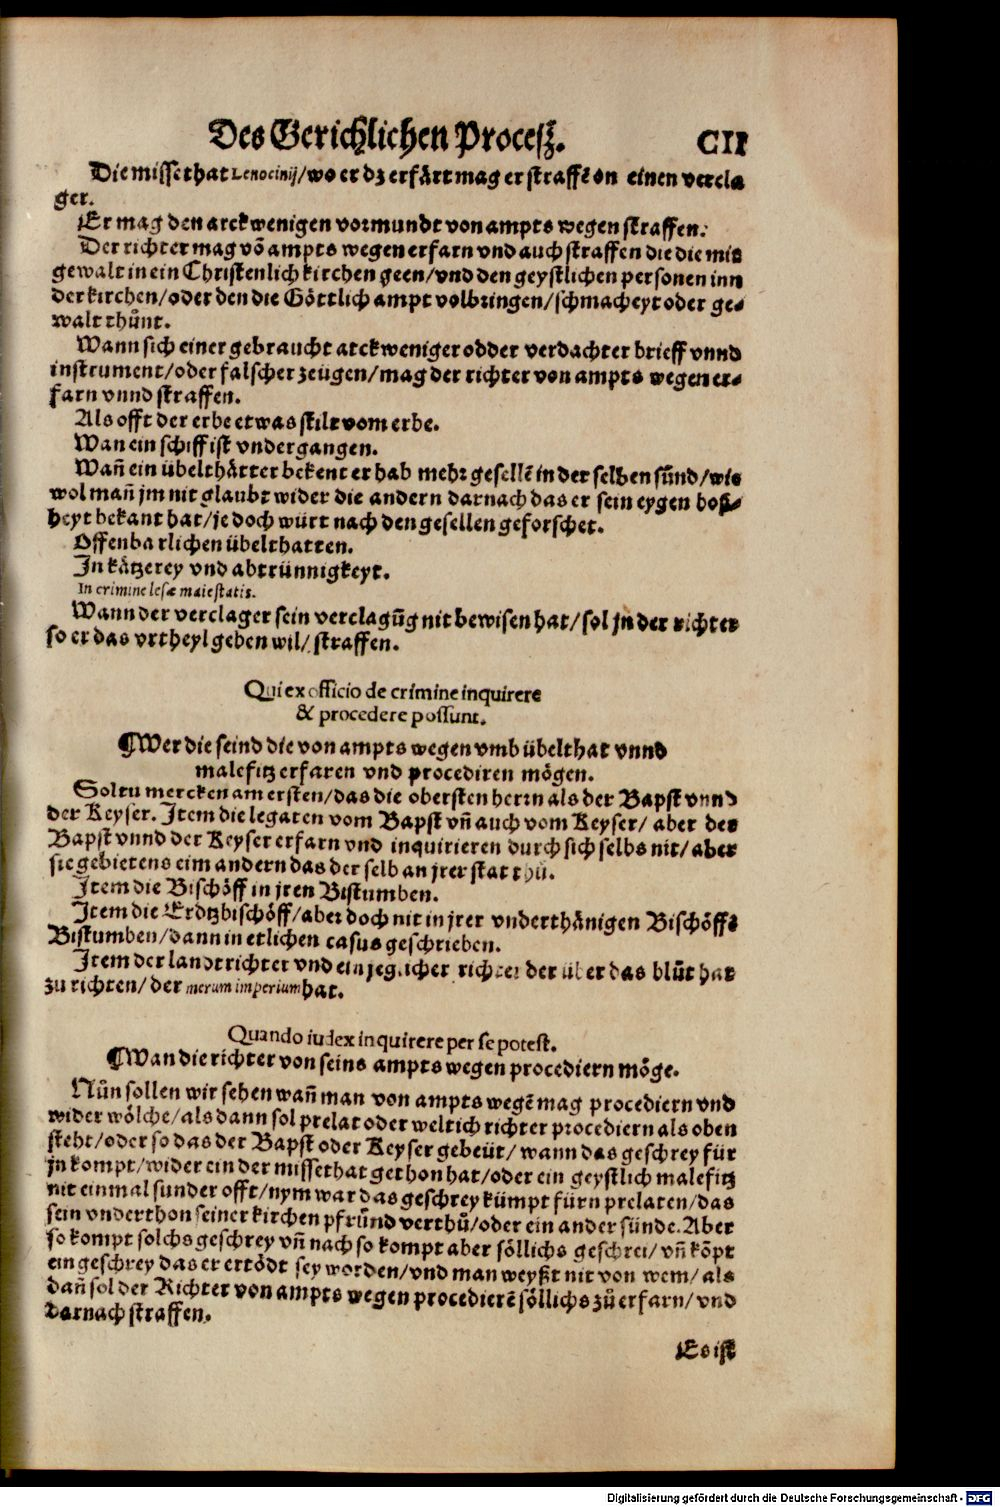 Des Gerichlichen Procesz. CII
Die missethat Lenocinij/wo er dz erfärt mag er straffē on einen vercla
ger.
Er mag den arckwenigen vormundt von ampts wegen straffen.
Der richter mag võ ampts wegen erfarn vnd auch straffen die die mit
gewalt in ein Christenlich kirchen geen/vnd den geystlichen personen inn
der kirchen/oder den die Göttlich ampt volbringen/schmacheyt oder ge⸗
walt thůnt.
Wann sich einer gebraucht arckweniger odder verdachter brieff vnnd
instrument/oder falscher zeügen/mag der richter von ampts wegen er⸗
farn vnnd straffen.
Als offt der erbe etwas stilt vom erbe.
Wan ein schiff ist vndergangen.
Wañ ein übelthätter bekent er hab mehr gesellē in der selben sünd/wie
wol mañ jm nit glaubt wider die andern darnach das er sein eygen boß⸗
heyt bekant hat/je doch würt nach den gesellen geforschet.
Offenbarlichen übelthatten.
In kätzerey vnd abtrünnigkeyt.
In crimine lesæ maiestatis.
Wann der verclager sein verclagūg nit bewisen hat/sol jn der richter
so er das vrtheyl geben wil/straffen.
Qui ex officio de crimine inquirere
& procedere possunt.
¶Wer die seind die von ampts wegen vmb übelthat vnnd
malefitz erfaren vnd procediren mögen.
Soltu mercken am ersten/das die obersten herrn als der Bapst vnnd
der Keyser. Item die legaten vom Bapst vñ auch vom Keyser/ aber der
Bapst vnnd der Keyser erfarn vnd inquirieren durch sich selbs nit/aber
sie gebietens eim andern das der selb an jrer stat thů.
Item die Bischöff in jren Bistumben.
Item die Erdtzbischöff/aber doch nit in jrer vnderthänigen Bischöffē
Bistumben/dann in etlichen casus geschrieben.
Item der landtrichter vnd ein jeglicher richter der über das blůt hat
zu richten/der merum imperium hat.
Quando iudex inquirere per se potest.
¶Wan die richter von seins ampts wegen procediern möge.
Nůn sollen wir sehen wañ man von ampts wegē mag procediern vnd
wider wölche/als dann sol prelat oder weltlich richter procediern als oben
steht/oder so das der Bapst oder Keyser gebeüt/wann das geschrey für
jn kompt/wider ein der missethat gethon hat/oder ein geystlich malefitz
nit einmal sunder offt/nym war das geschrey kümpt fürn prelaten/das
sein vnderthon seiner kirchen pfründ verthů/oder ein ander sünde. Aber
so kompt solchs geschrey vñ nach so kompt aber söllichs geschrei/vñ kõpt
ein geschrey das er ertödt sey worden/vnd man weyßt nit von wem/als
dañ sol der Richter von ampts wegen procedierē söllichs zů erfarn/vnd
darnach straffen.
Es ist
Digitalisierung gefördert durch die Deutsche Forschungsgemeinschaft - DFG